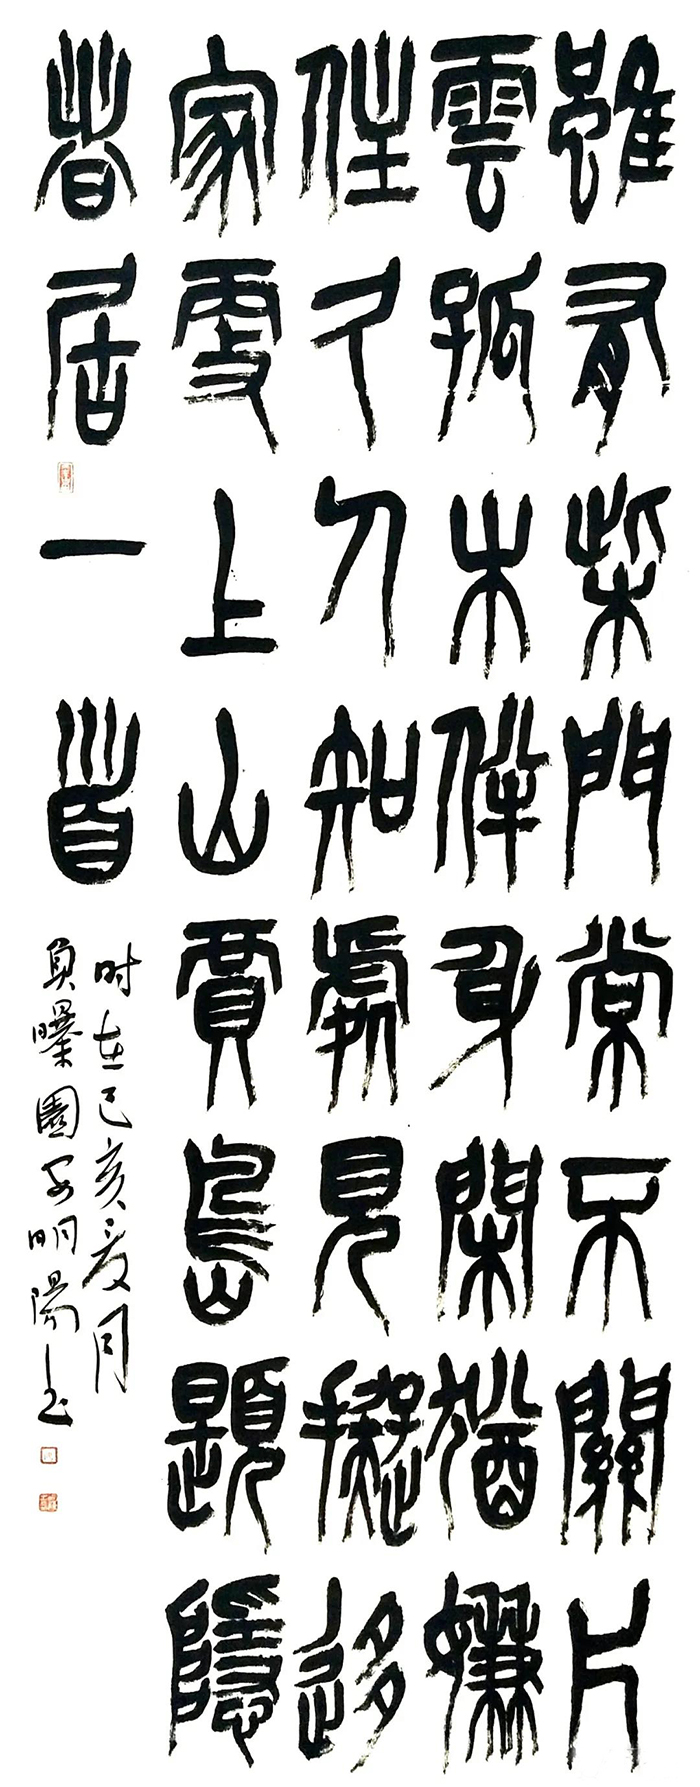 雖有柴門常不關片
雲孤木伴身閑猶嫌
住久人知處見擬移
家更上山賈島題隱
者居一首
时在己亥夏月
負曝園安明陽书